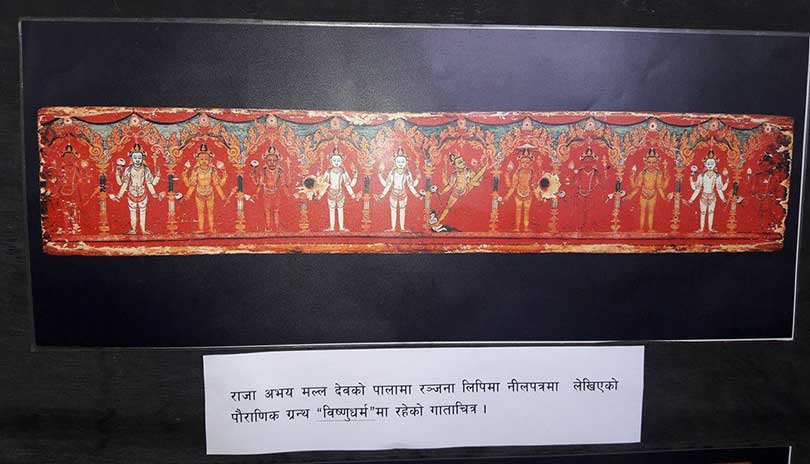 राजा अभय मल्ल देवको पालामा रञ्जना लिपिमा नीलपत्रमा लेखिएको
पौराणिक ग्रन्थ “विष्णुधर्म”मा रहेको गाताचित्र ।